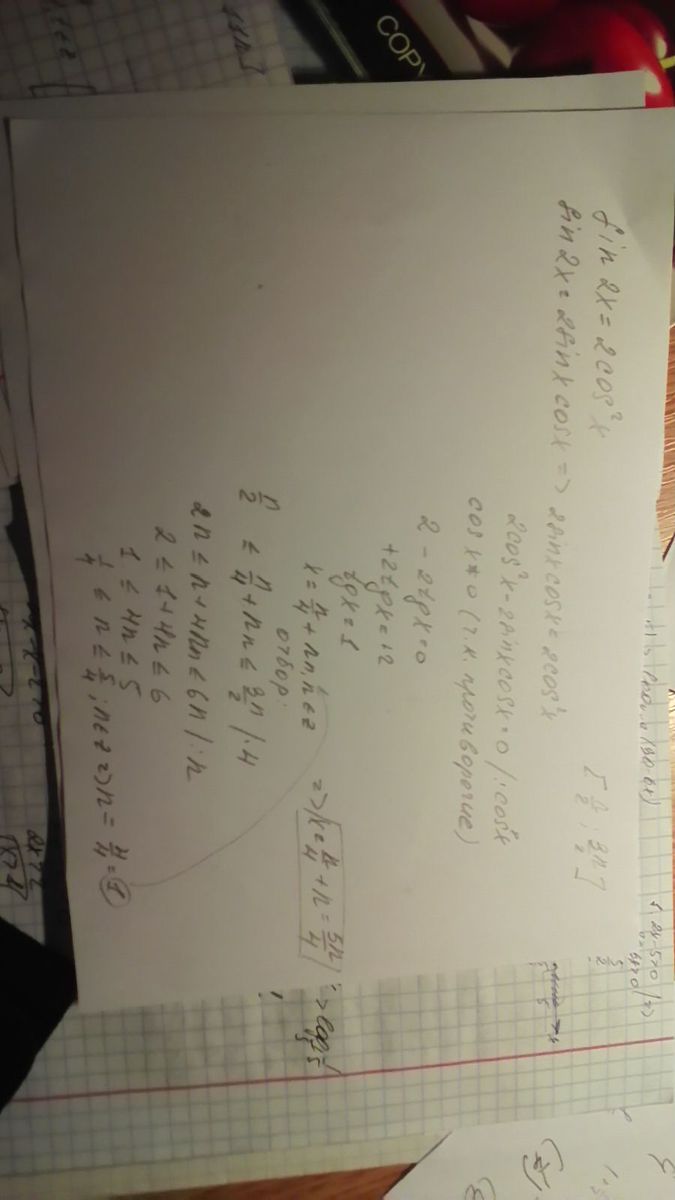 COPY
sin 2x = 2cos² x
sin 2x = 2sin x cos x => 2sin x cos x = 2cos² x
[π/2 ; 3π/2]
2cos² x - 2sin x cos x = 0 /: cos² x
cos x ≠ 0 (т.к. противоречие)
2 - 2tg x = 0
+2tg x = +2
tg x = 1
x = π/4 + πn, n ∈ z
=> x = π/4 + π = 5π/4
отбор:
π/2 ≤ π/4 + πn ≤ 3π/2 /·4
2π ≤ π + 4πn ≤ 6π /: π
2 ≤ 1 + 4n ≤ 6
1 ≤ 4n ≤ 5
1/4 ≤ n ≤ 5/4 ; n ∈ z => n = 4/4 = 1